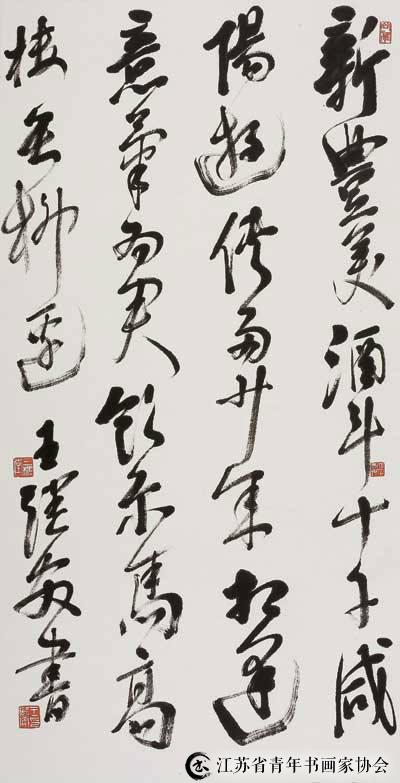 新豐美酒斗十千咸
陽遊俠多少年相逢
意氣為君飲系馬高
樓垂柳邊 王继安書
江苏省青年书画家协会